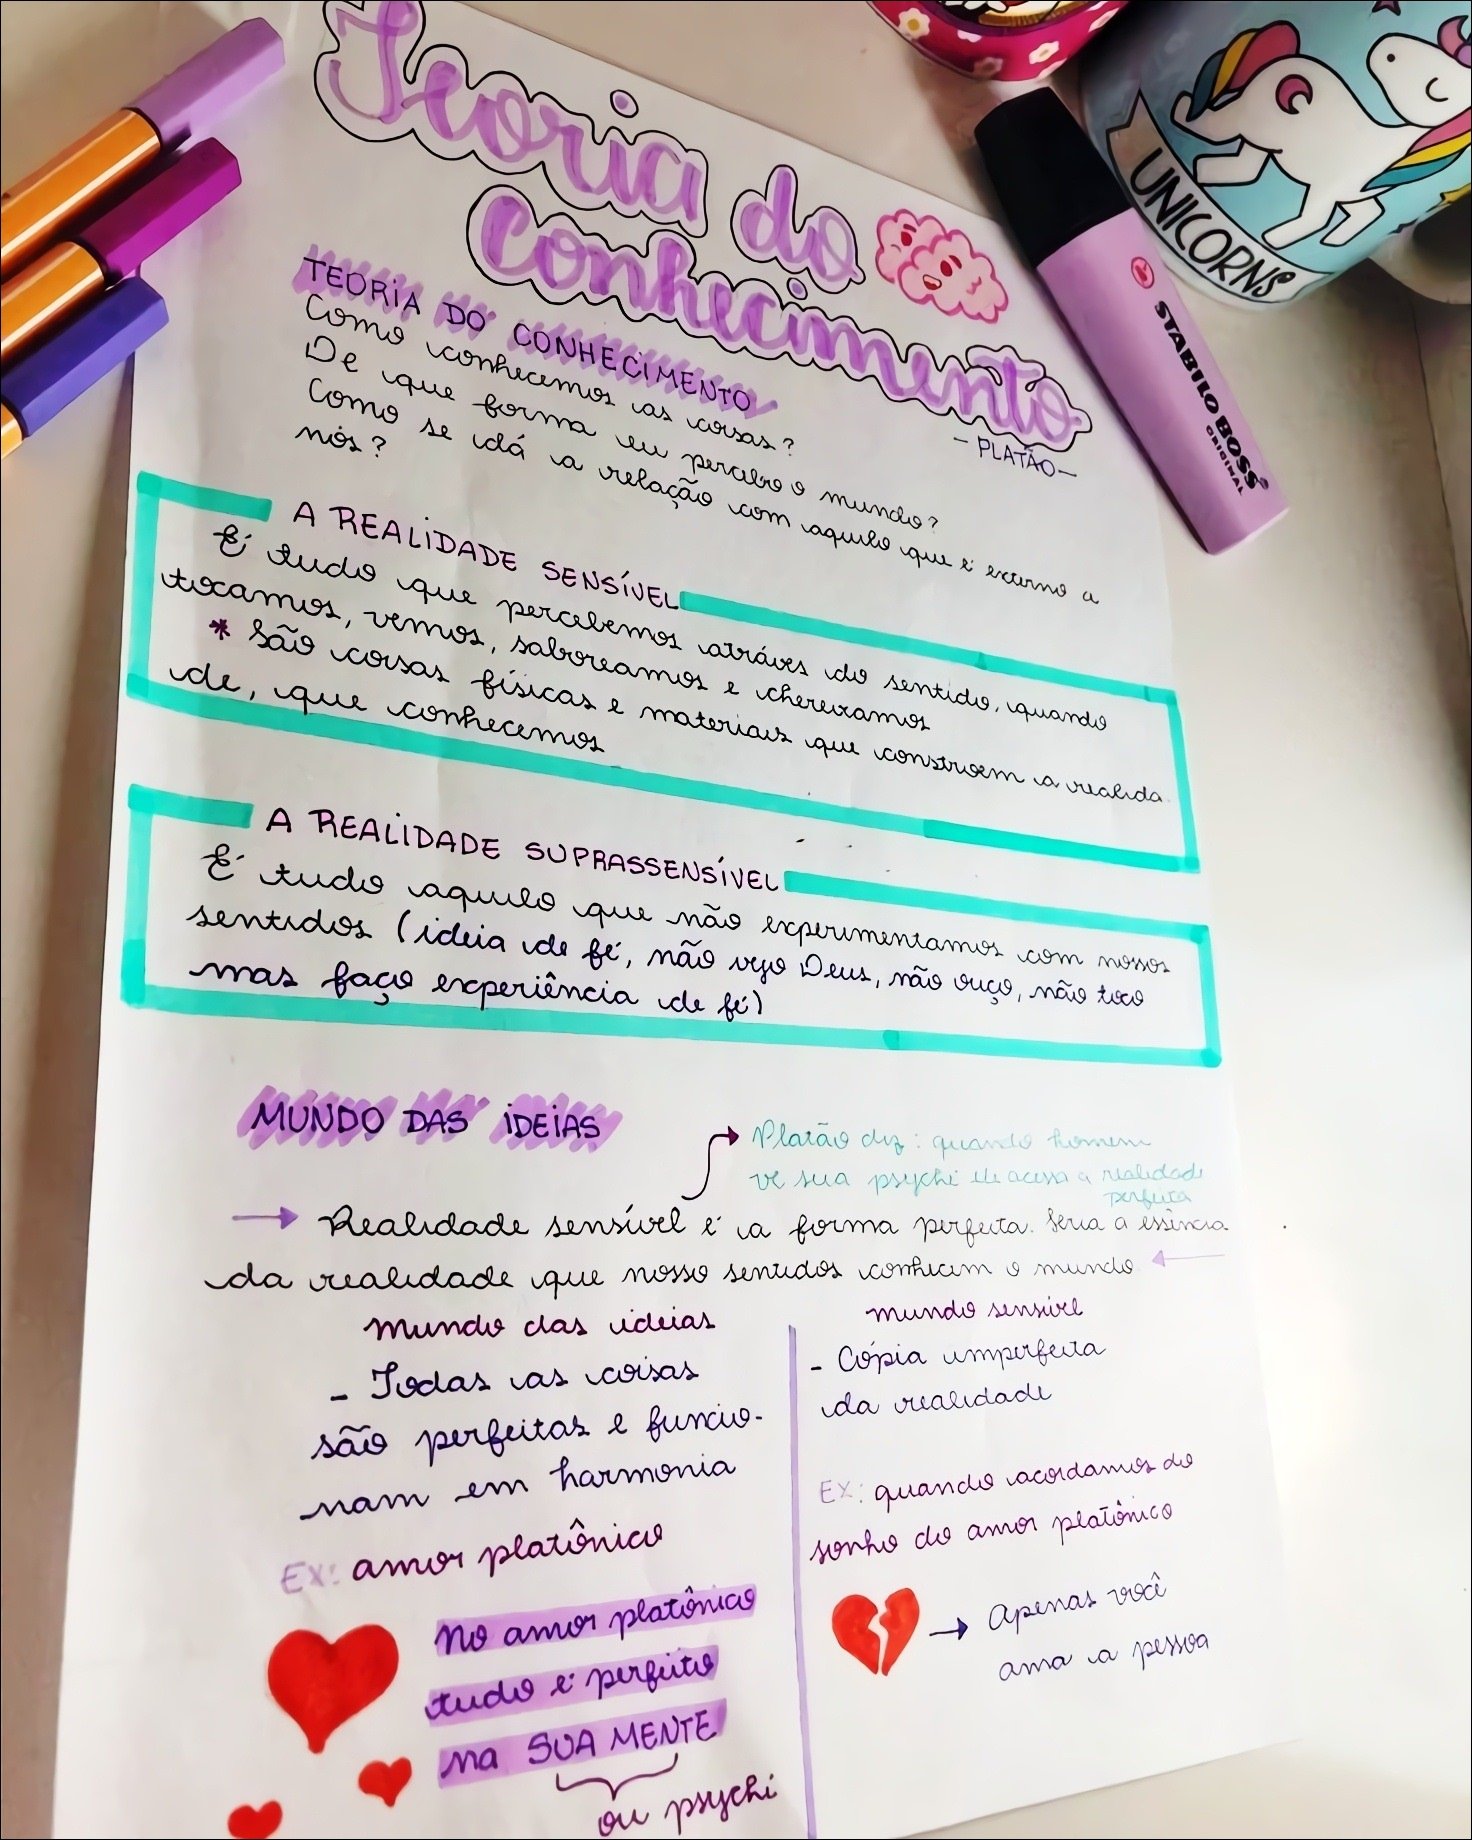 Teoria do
Conhecimento
- PLATÃO -
TEORIA DO CONHECIMENTO
Como conhecemos as coisas?
De que forma eu percebo o mundo?
Como se dá a relação com aquilo que é externo a
nós?
A REALIDADE SENSÍVEL
É tudo que percebemos atráves do sentido, quando
tocamos, vemos, saboreamos e cheiramos
* São coisas físicas e materiais que constroem a realida
de, que conhecemos
A REALIDADE SUPRASSENSÍVEL
É tudo aquilo que não experimentamos com nossos
sentidos (ideia de fé, não vejo Deus, não ouço, não toco
mas faço experiência de fé)
MUNDO DAS IDEIAS
Platão diz: quando homem
vê sua psychi ele acessa a realidade
perfeita
→ Realidade sensível é a forma perfeita. Seria a essência
da realidade que nosso sentidos conhecem o mundo ←
mundo das ideias
- Todas as coisas
são perfeitas e funcio-
nam em harmonia
EX: amor platônico
No amor platônico
tudo é perfeito
na SUA MENTE
ou psychi
mundo sensível
- Cópia imperfeita
da realidade
EX: quando acordamos do
sonho do amor platônico
→ Apenas você
ama a pessoa
STABILO BOSS
ORIGINAL
UNICORNS